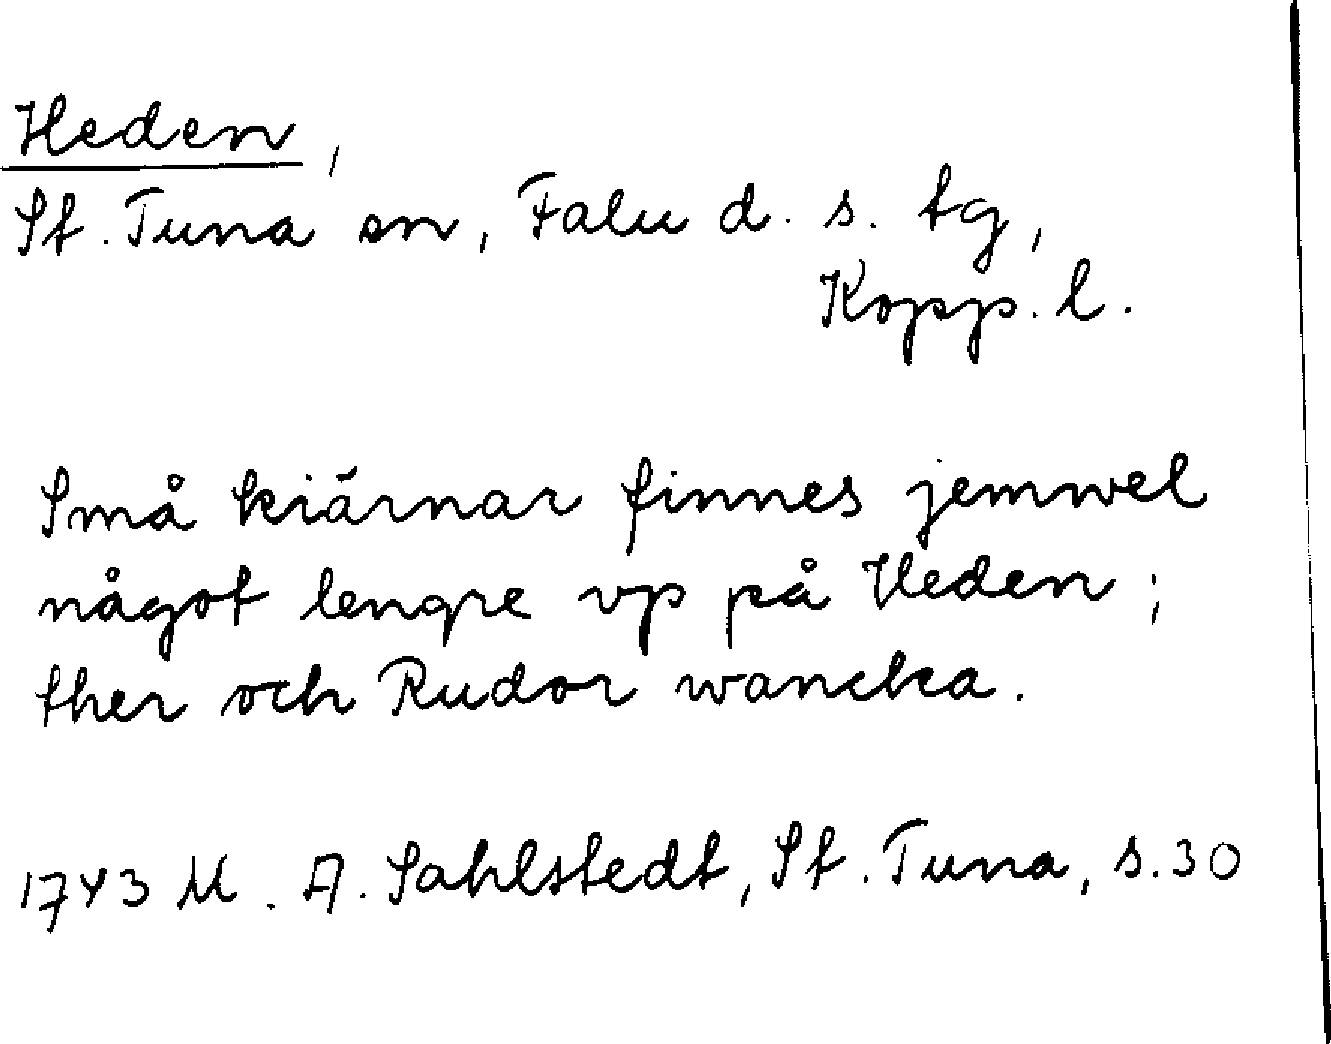 Heden,
St. Tuna sn, Falu d. s. tg,
Kopp. l.
Små kiärnar finnes jemwel
något lengre vp på Heden;
ther och Rudor wancka.
1743 M. A. Sahlstedt, St. Tuna, s. 30